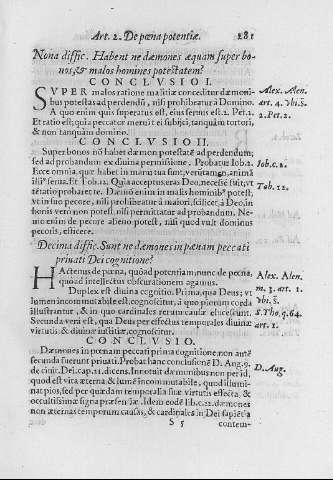 Art. 2. De pœna potentiæ. 281
Nona diffic. Habent ne dæmones æquam super bo-
nos, & malos homines potestatem?
CONCLUSIO I.
SUPER malos ratione malitiæ conceditur dæmoni-
bus potestas ad perdendū, nisi prohibeatur à Domino.
A quo enim quis superatus est, eius seruus est. 2. Pet. 2.
Et ratio est; quia peccator meruit ei subijci, tanquàm tortori,
& non tanquàm domino.
Alex. Alen.
art. 4. vbi s.
2. Pet. 2.
CONCLUSIO II.
Super bonos nō habet dæmon potestatē ad perdendum;
sed ad probandum ex diuina permissione. Probatur Iob. 2.
Ecce omnia, quæ habet in manu tua sunt, verūtamen animā
illius serua. Et Tob. 12. Quia acceptus eras Deo, necesse fuit, vt
tētatio probaret te. Dæmō enim in malis hominib⁹ potest,
vt in suo pecore, nisi prohibeatur à maiori, scilicet, à Deo, in
bonis verò non potest, nisi permittatur ad probandum. Ne-
mo enim de pecore alieno potest, nisi quod vult dominus
pecoris, efficere.
Iob. c. 2.
Tob. 12.
Decima diffic. Sunt ne dæmones in pœnam peccati
priuati Dei cognitione?
HActenus de pœna, quoad potentiam, nunc de pœna,
quoad intellectus obscurationem agamus.
Duplex est diuina cognitio. Prima, qua Deus; vt
lumen incommutabile est, cognoscitur, à quo piorum corda
illustrantur, & in quo cardinales rerum causæ elucescunt.
Secunda verò est, qua Deus per effectus temporales diuinæ
virtutis, & diuinæ iustitiæ, cognoscitur.
Alex. Alen.
m. 3. art. 1.
vbi s.
S. Tho. q. 64.
art. 1.
CONCLUSIO.
Dæmones in pœnam peccati prima cognitione, non autē
secunda fuerunt priuati. Probat hanc conclusionē D. Aug. 9.
de ciuit. Dei. cap. 21. dicens. Innotuit dæmonibus non per id,
quod est vita æterna, & lumē incommutabile, quod illumi-
nat pios, sed per quædam temporalia suæ virtutis effecta, &
occultissimæ signa præsentiæ. Idem eodē lib. c. 22. dæmones
non æternas temporum causas, & cardinales in Dei sapiētia
D. Aug.
S 5 contem-